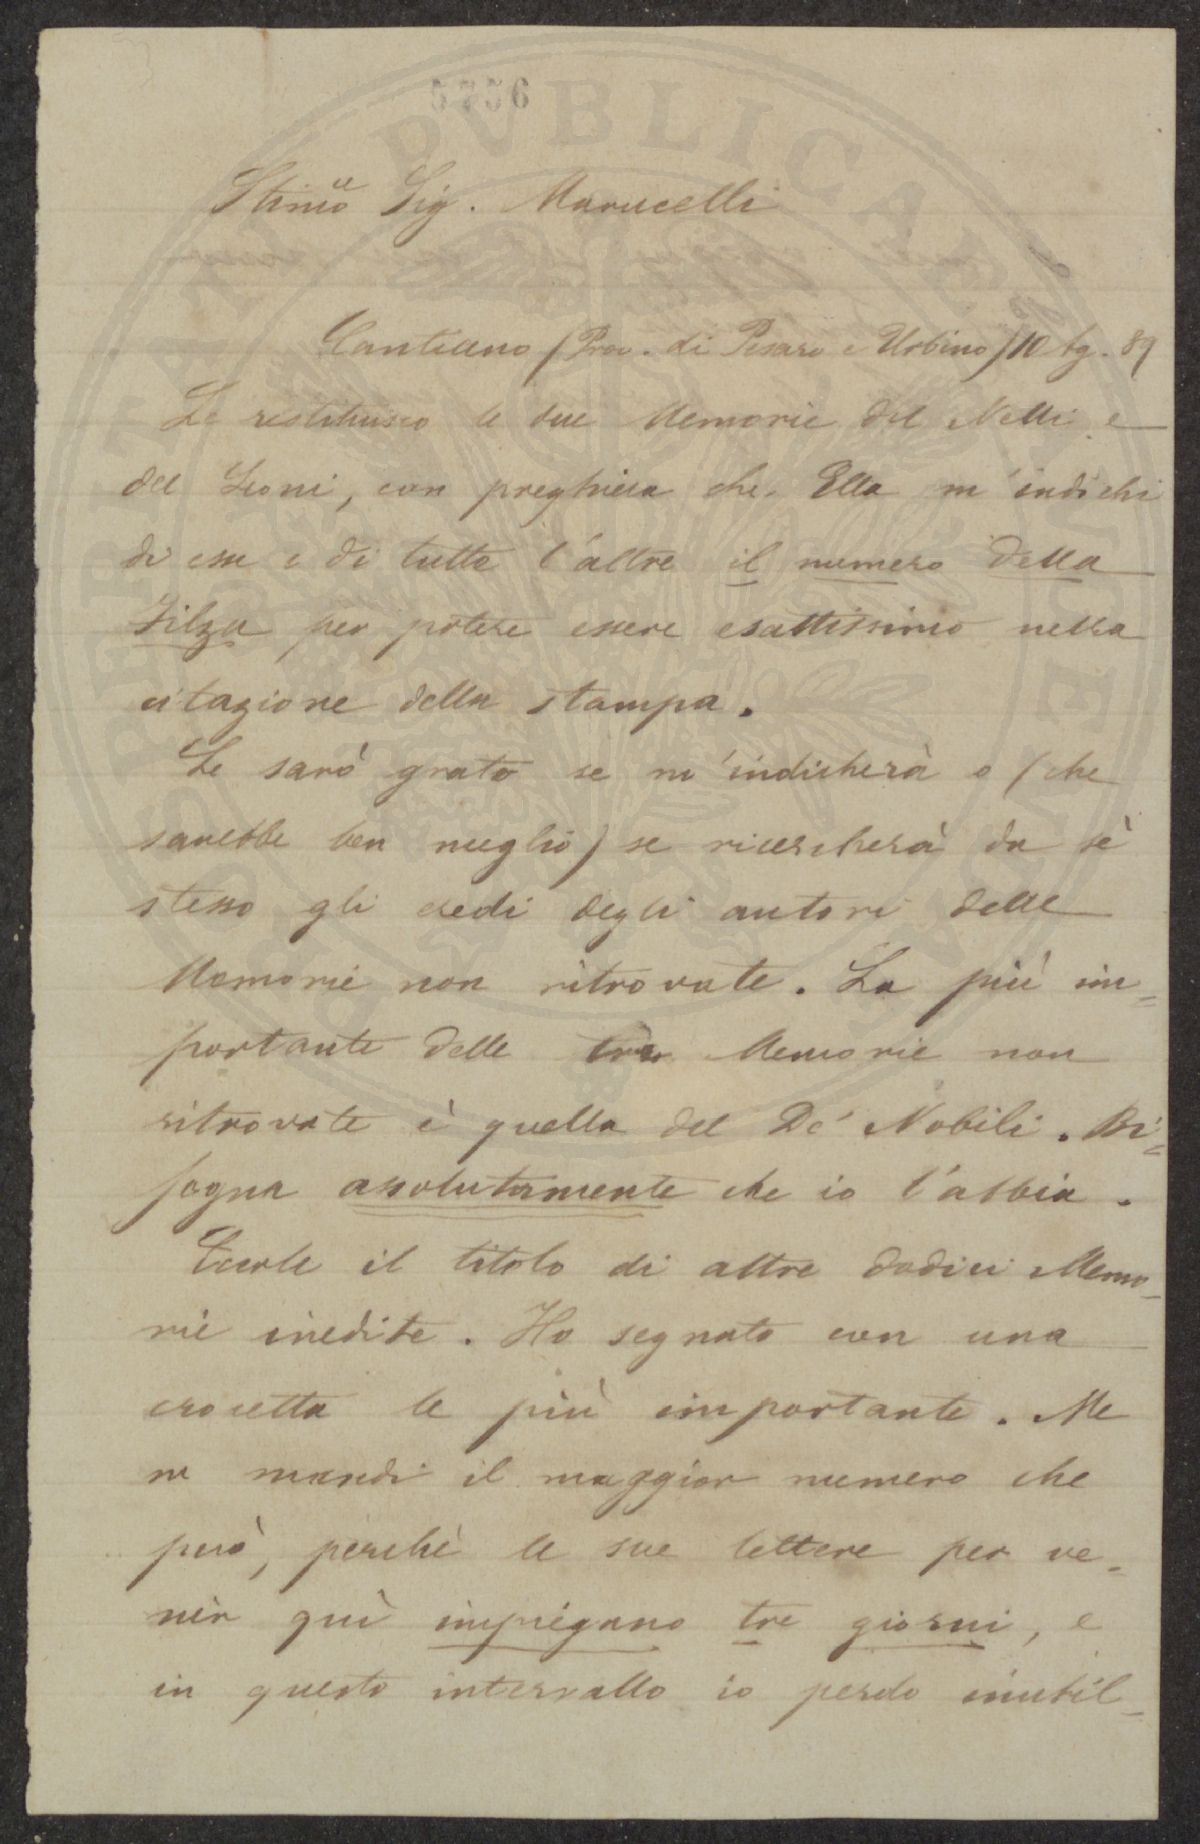 5856
Stimo Sig. Marucelli
Cantiano (Prov. di Pesaro e Urbino) 10 Ag. 89
Le restituisco le due Memorie del Nelli e
del Leoni, con preghiera che Ella m'indichi
di esse e di tutte l'altre il numero della
Filza per potere essere esattissimo nella
citazione della stampa.
Le sarò grato se m'indicherà o (che
sarebbe ben meglio) se ricercherà da sè
stesso gli eredi degli autori delle
Memorie non ritrovate. La più im=
portante delle tre Memorie non
ritrovate è quella del De' Nobili. Bi=
sogna assolutamente che io l'abbia.
Eccole il titolo di altre dodici Memo-
rie inedite. Ho segnato con una
crocetta le più importante. Me
ne mandi il maggior numero che
può, perchè le sue lettere per ve-
nir quì impiegano tre giorni, e
in questo intervallo io perdo inutil-